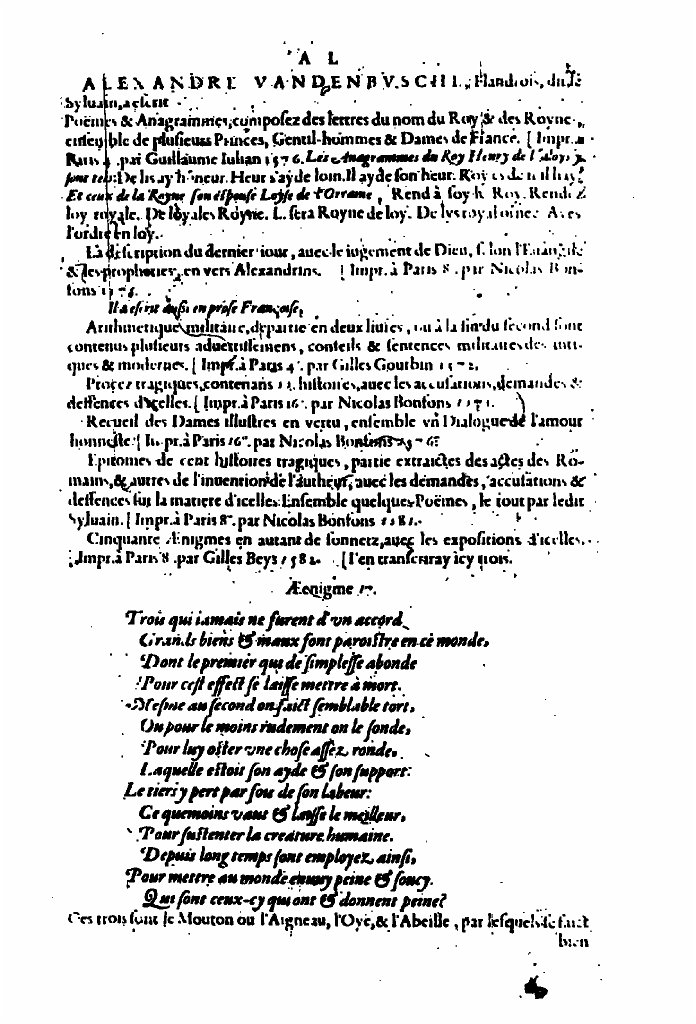 A L
ALEXANDRE VANDENBVSCHE, Flandrois, du le
Syluain, a escrit
Poëmes & Anagrammes, composez des lettres du nom du Roy & des Royne,
ensemble de plusieurs Princes, Gentil-hommes & Dames de France. [Impr. a
Paris 4. par Guillaume Iulian 1576. Les Anagrammes du Roy Henry de
De hay honeur. Heur s'ay de loin. Il ay de son heur.
Et ceux de la Royne son espouse Loyse de Lorraine, Rend à soy h Roy. Rend
loy royale. De loyales Royne. L. sera Royne de loy. De lys
l'ordre en loy.
La description du dernier iour, auec le iugement de Dieu, selon l'Euangile
& les propheties, en vers Alexandrins. [Impr. à Paris 8. par Nicolas Bon-
fons 1576.
Il a escrit aussi en prose Françoise,
Arithmetique militaire, departie en deux liures, ou à la fin du second sont
contenus plusieurs aduertissemens, conseils & sentences militaires des anti-
ques & modernes. [Impr. à Paris 4. par Gilles Gourbin 1572.
Procez tragiques, contenans histoires, auec les accusations, demandes &
deffences d'icelles. [Impr. à Paris 16. par Nicolas Bonfons
Recueil des Dames illustres en vertu, ensemble vn Dialogue de l'amour
honneste. [Impr. à Paris 16. par Nicolas Bonfons
Epitomes de cent histoires tragiques, partie extraictes des actes des Ro-
mains, & autres de l'inuention de l'autheur, auec les demandes, accusations &
deffences sur la matiere d'icelles. Ensemble quelques Poëmes, le tout par ledit
Syluain. [Impr. à Paris 8. par Nicolas Bonfons 1581.
Cinquante Ænigmes en autant de sonnetz, auec les expositions d'icelles.
[Impr. à Paris 8. par Gilles Beys 1582. [I'en transferay icy trois.
Æenigme 17.
Trois qui iamais ne furent d'vn accord
Grands biens & maux font paroistre en ce monde,
Dont le premier qui de simplesse abonde
Pour cest effect se laisse mettre à mort.
Mesme au second on faict semblable tort,
Ou pour le moins rudement on le sonde,
Pour luy oster vne chose assez ronde,
Laquelle estoit son ayde & son support:
Le tiers y pert par fou de son labeur:
Ce que moins vaut & laisse le meilleur,
Pour sustenter la creature humaine.
Depuis long temps sont employez ainsi,
Pour mettre au monde ennuy peine & soucy.
Qui sont ceux-cy qui ont & donnent peine?
Ces trois sont le Mouton ou l'Aigneau, l'Oye, & l'Abeille, par lesquels se faict
bien